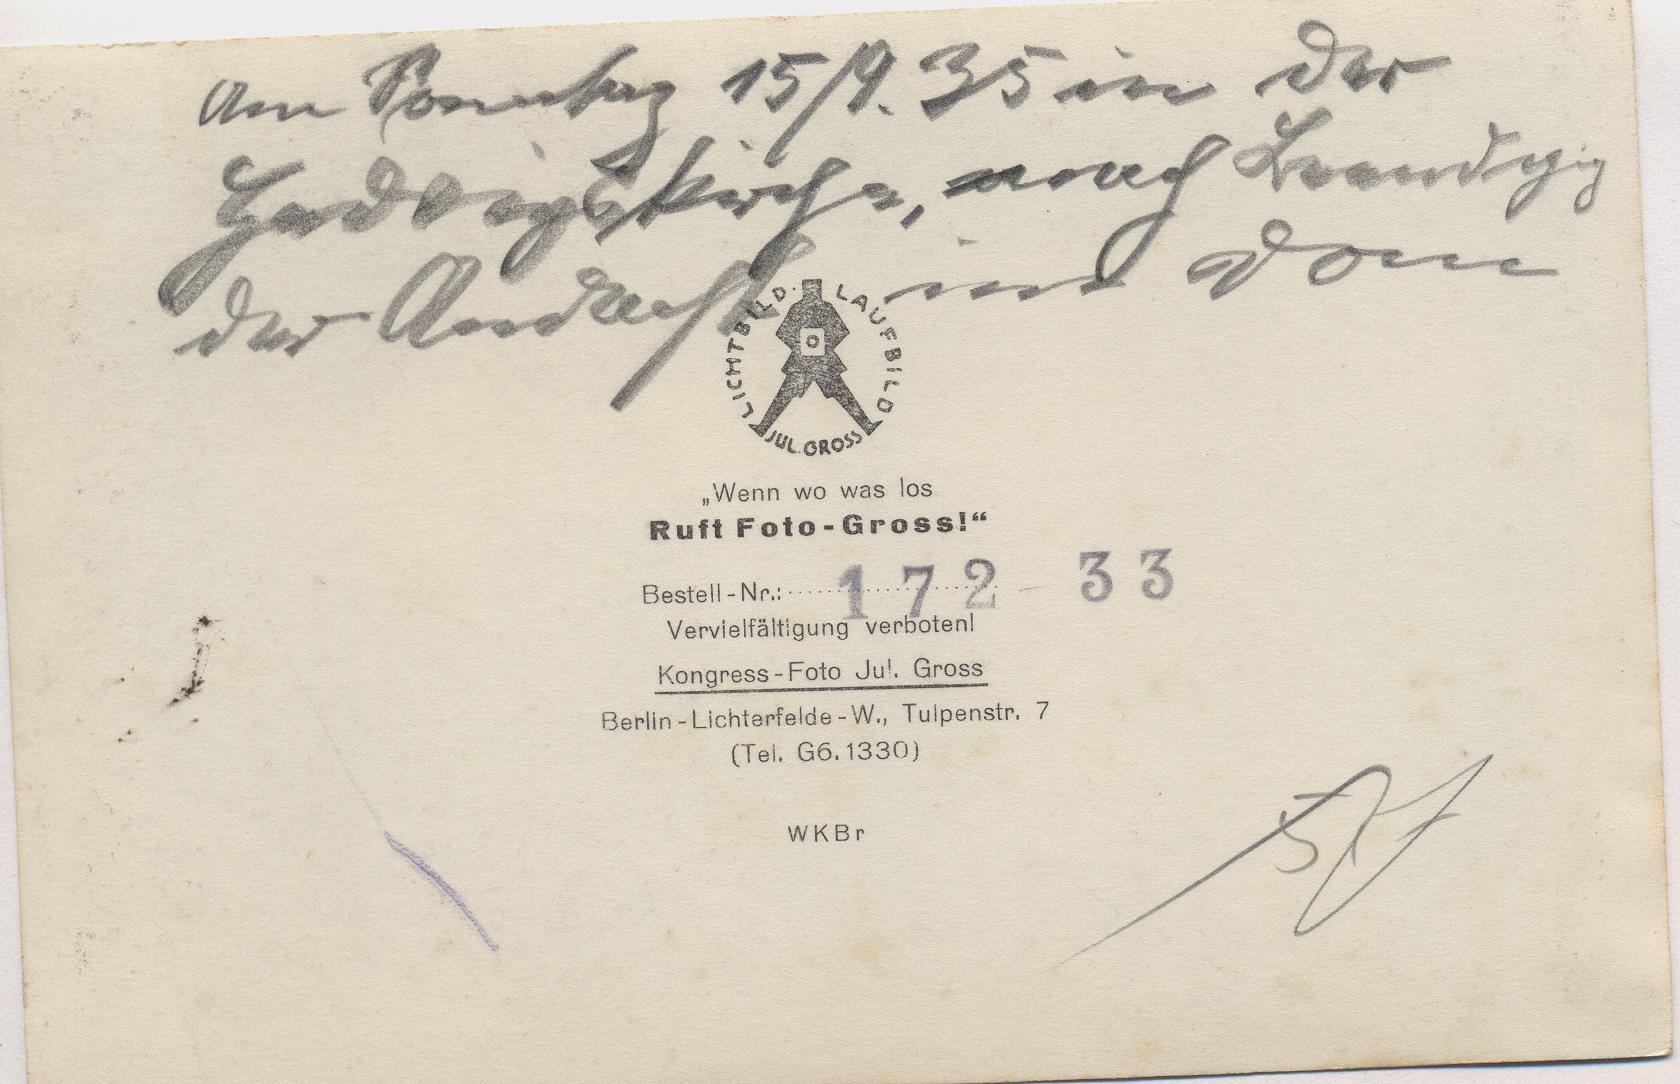 Am Sonntag 15/9.35 in der
Hedwigskirche, nach Beendigung
der Andacht im Dom
LICHTBILD · LAUFBILD
JUL. GROSS
„Wenn wo was los
Ruft Foto-Gross!“
Bestell-Nr.: 172 33
Vervielfältigung verboten!
Kongress-Foto Jul. Gross
Berlin-Lichterfelde-W., Tulpenstr. 7
(Tel. G6.1330)
WKBr